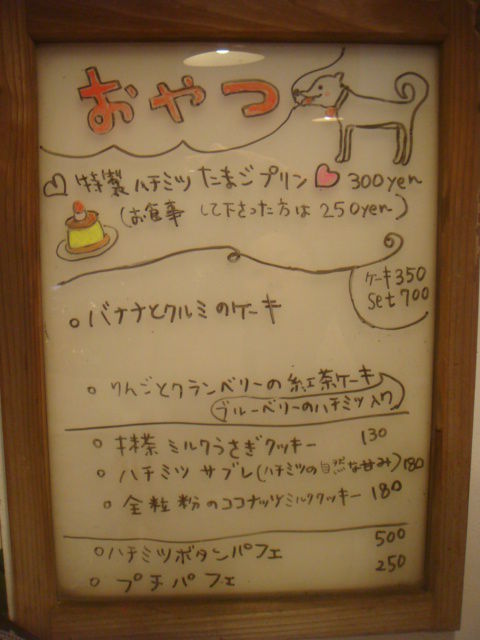 おやつ
特製ハチミツたまごプリン 300yen
(お食事して下さった方は250yen)
ケーキ350
set 700
バナナとクルミのケーキ
りんごとクランベリーの紅茶ケーキ
ブルーベリーのハチミツ入り
抹茶ミルクうさぎクッキー 130
ハチミツサブレ(ハチミツの自然な甘み) 180
全粒粉のココナッツミルククッキー 180
ハチミツボタンパフェ 500
プチパフェ 250